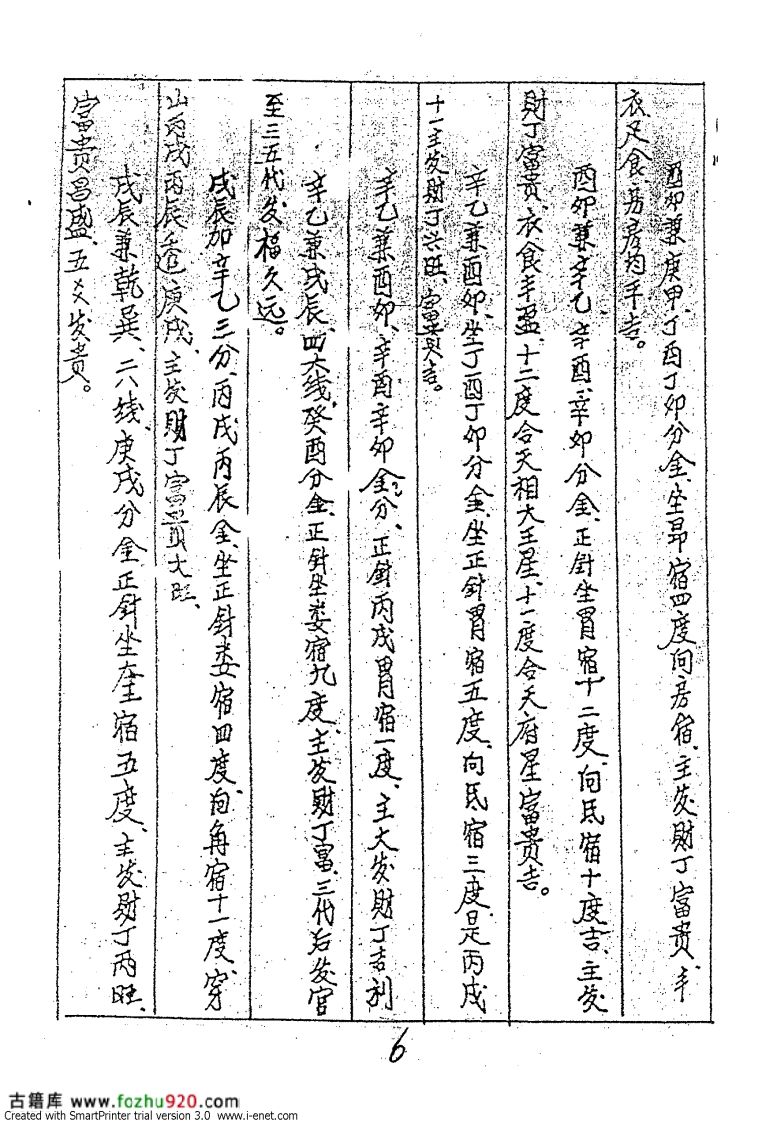 酉卯兼庚甲、丁酉丁卯分金、坐昴宿四度向房宿、主发财丁富贵、丰
衣足食、房房均平吉。
酉卯兼辛乙、辛酉、辛卯分金、正针坐胃宿十二度、向氐宿十度吉、主发
财丁富贵、衣食丰盈、十二度合天相大王星、十一度合天府星富贵吉。
辛乙兼酉卯、坐丁酉丁卯分金、坐正针胃宿五度、向氐宿三度、是丙戌
十一主发财丁兴旺、富贵吉。
辛乙兼酉卯、辛酉辛卯金分、正针丙戌胃宿一度、主大发财丁吉利
辛乙兼戌辰、四大线、癸酉分金、正针坐娄宿九度、主发财丁富、三代后发官
至三五代发福久远。
戌辰加辛乙三分、丙戌丙辰金、坐正针娄宿四度、向角宿十一度、穿
山丙戌丙辰、透庚戌、主发财丁富贵大旺、
戌辰兼乾巽、二八线、庚戌分金正针坐奎宿五度、主发财丁两旺、
富贵昌盛、五爻发贵。
6
古籍库 www.fozhu920.com
Created with SmartPrinter trial version 3.0 www.i-enet.com